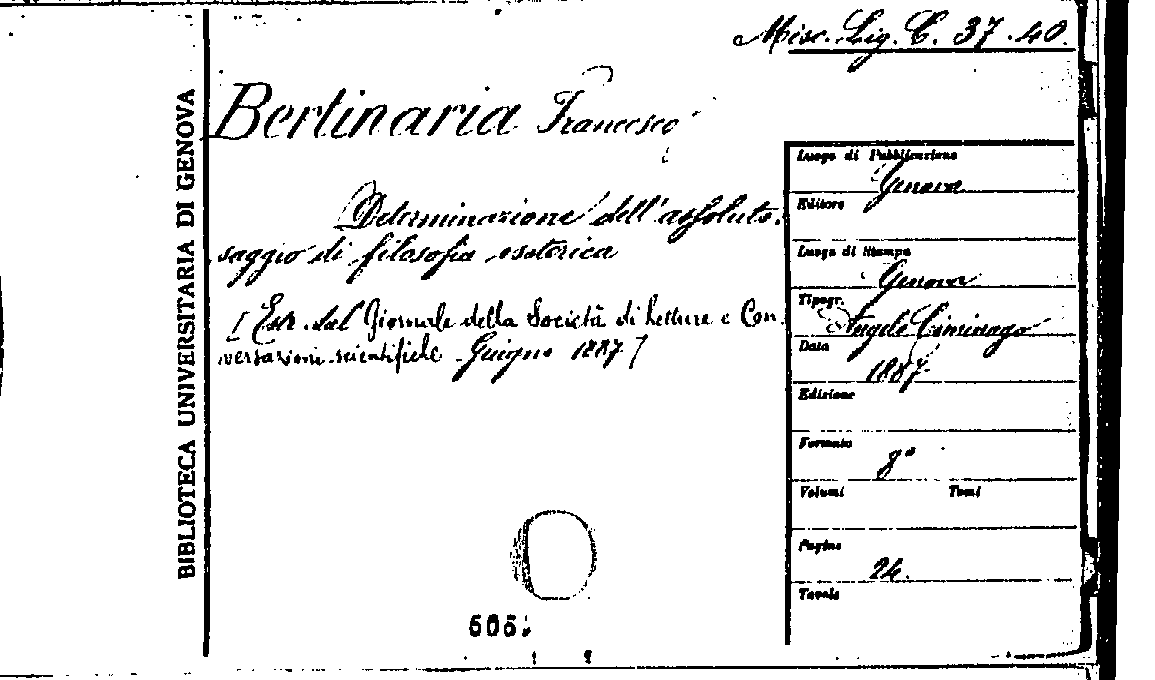 Misc. Lig. C. 37.40
BIBLIOTECA UNIVERSITARIA DI GENOVA
Bertinaria Francesco
Determinazione dell'assoluto.
saggio di filosofia esoterica
[Estr. dal Giornale della Società di Letture e Con
versazioni scientifiche Giugno 1887]
Luogo di Pubblicazione
Genova
Editore
Luogo di Stampa
Genova
Tipogr.
Angelo Ciminago
Data
1887
Edizione
Formato
8°
Volumi Tomi
Pagine
24
Tavole